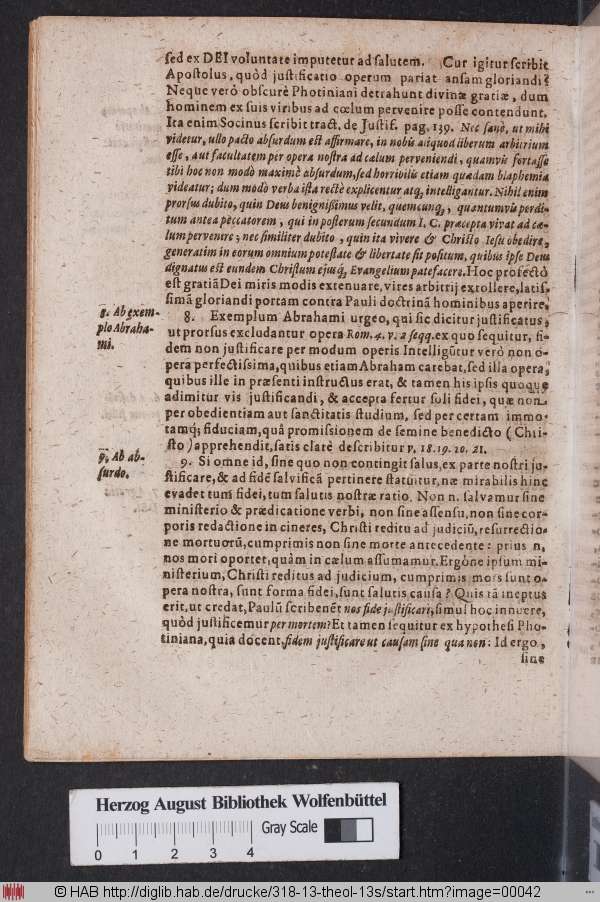 sed ex DEI voluntate imputetur ad salutem. Cur igitur scribit
Apostolus, quòd justificatio operum pariat ansam gloriandi?
Neque verò obscurè Photiniani detrahunt divinæ gratiæ, dum
hominem ex suis viribus ad cœlum pervenire posse contendunt.
Ita enim Socinus scribit tract. de Justif. pag. 139. Nec sanè, ut mihi
videtur, ullo pacto absurdum est affirmare, in nobis aliquod liberum arbitrium
esse, aut facultatem per opera nostra ad cælum perveniendi, quamvis fortasse
tibi hoc non modò maximè absurdum, sed horribilis etiam quædam blasphemia
videatur; dum modò verba ista rectè explicentur atq, intelligantur. Nihil enim
prorsus dubito, quin Deus benignissimus velit, quemcunq, quantumvis perdi-
tum antea peccatorem, qui in posterum secundum I. C. præcepta vivat ad cæ-
lum pervenire; nec similiter dubito, quin ita vivere & Christo Iesu obedire,
generatim in eorum omnium potestate & libertate sit positum, quibus ipse Deus
dignatus est eundem Christum ejusq, Evangelium patefacere. Hoc profectò
est gratiã Dei miris modis extenuare, vires arbitrij extollere, latis-
simã gloriandi portam contra Pauli doctrinã hominibus aperire.
8. Ab exem-
plo Abraha-
mi.
8. Exemplum Abrahami urgeo, qui sic dicitur justificatus,
ut prorsus excludantur opera Rom. 4. v. 2 seqq. ex quo sequitur, fi-
dem non justificare per modum operis Intelligũtur verò non o-
pera perfectissima, quibus etiam Abraham carebat, sed illa opera,
quibus ille in præsenti instructus erat, & tamen his ipsis quoque
adimitur vis justificandi, & accepta fertur soli fidei, quæ non
per obedientiam aut sanctitatis studium, sed per certam immo-
tamq; fiduciam, quâ promissionem de semine benedicto (Chri-
sto) apprehendit, satis clarè describitur v. 18. 19. 20. 21.
9. Ab ab-
surdo.
9. Si omne id, sine quo non contingit salus, ex parte nostri ju-
stificare, & ad fidẽ salvificã pertinere statuitur, næ mirabilis hinc
evadet tum fidei, tum salutis nostræ ratio. Non n. salvamur sine
ministerio & prædicatione verbi, non sine assensu, non sine cor-
poris redactione in cineres, Christi reditu ad judiciũ, resurrectio-
ne mortuorũ, cumprimis non sine morte antecedente: prius n.
nos mori oportet, quàm in cælum assumamur. Ergòne ipsum mi-
nisterium, Christi reditus ad judicium, cumprimis mors sunt o-
pera nostra, sunt forma fidei, sunt salutis causa? Quis tã ineptus
erit, ut credat, Paulũ scribenẽt nos fide justificari, simul hoc innuere,
quòd justificemur per mortem? Et tamen sequitur ex hypothesi Pho-
tiniana, quia docent, fidem justificare ut causam sine qua non: Id ergo,
sine
Herzog August Bibliothek Wolfenbüttel
Gray Scale
0 1 2 3 4
© HAB http://diglib.hab.de/drucke/318-13-theol-13s/start.htm?image=00042